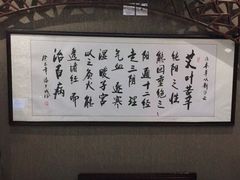 艾叶苦辛
纯阳之性
能回垂绝之
阳通十二经
走三阴理
气血逐寒
湿暖子宫
以之灸火能
透诸经而
治百病